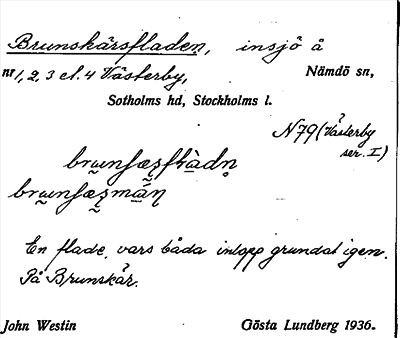 Brunskärsfladen, insjö å
nr 1, 2, 3 el. 4 Västerby, Nämdö sn,
Sotholms hd, Stockholms l.
N79 (Västerby
ser. I)
En flade, vars båda inlopp grundat igen.
På Brunskär.
John Westin Gösta Lundberg 1936.